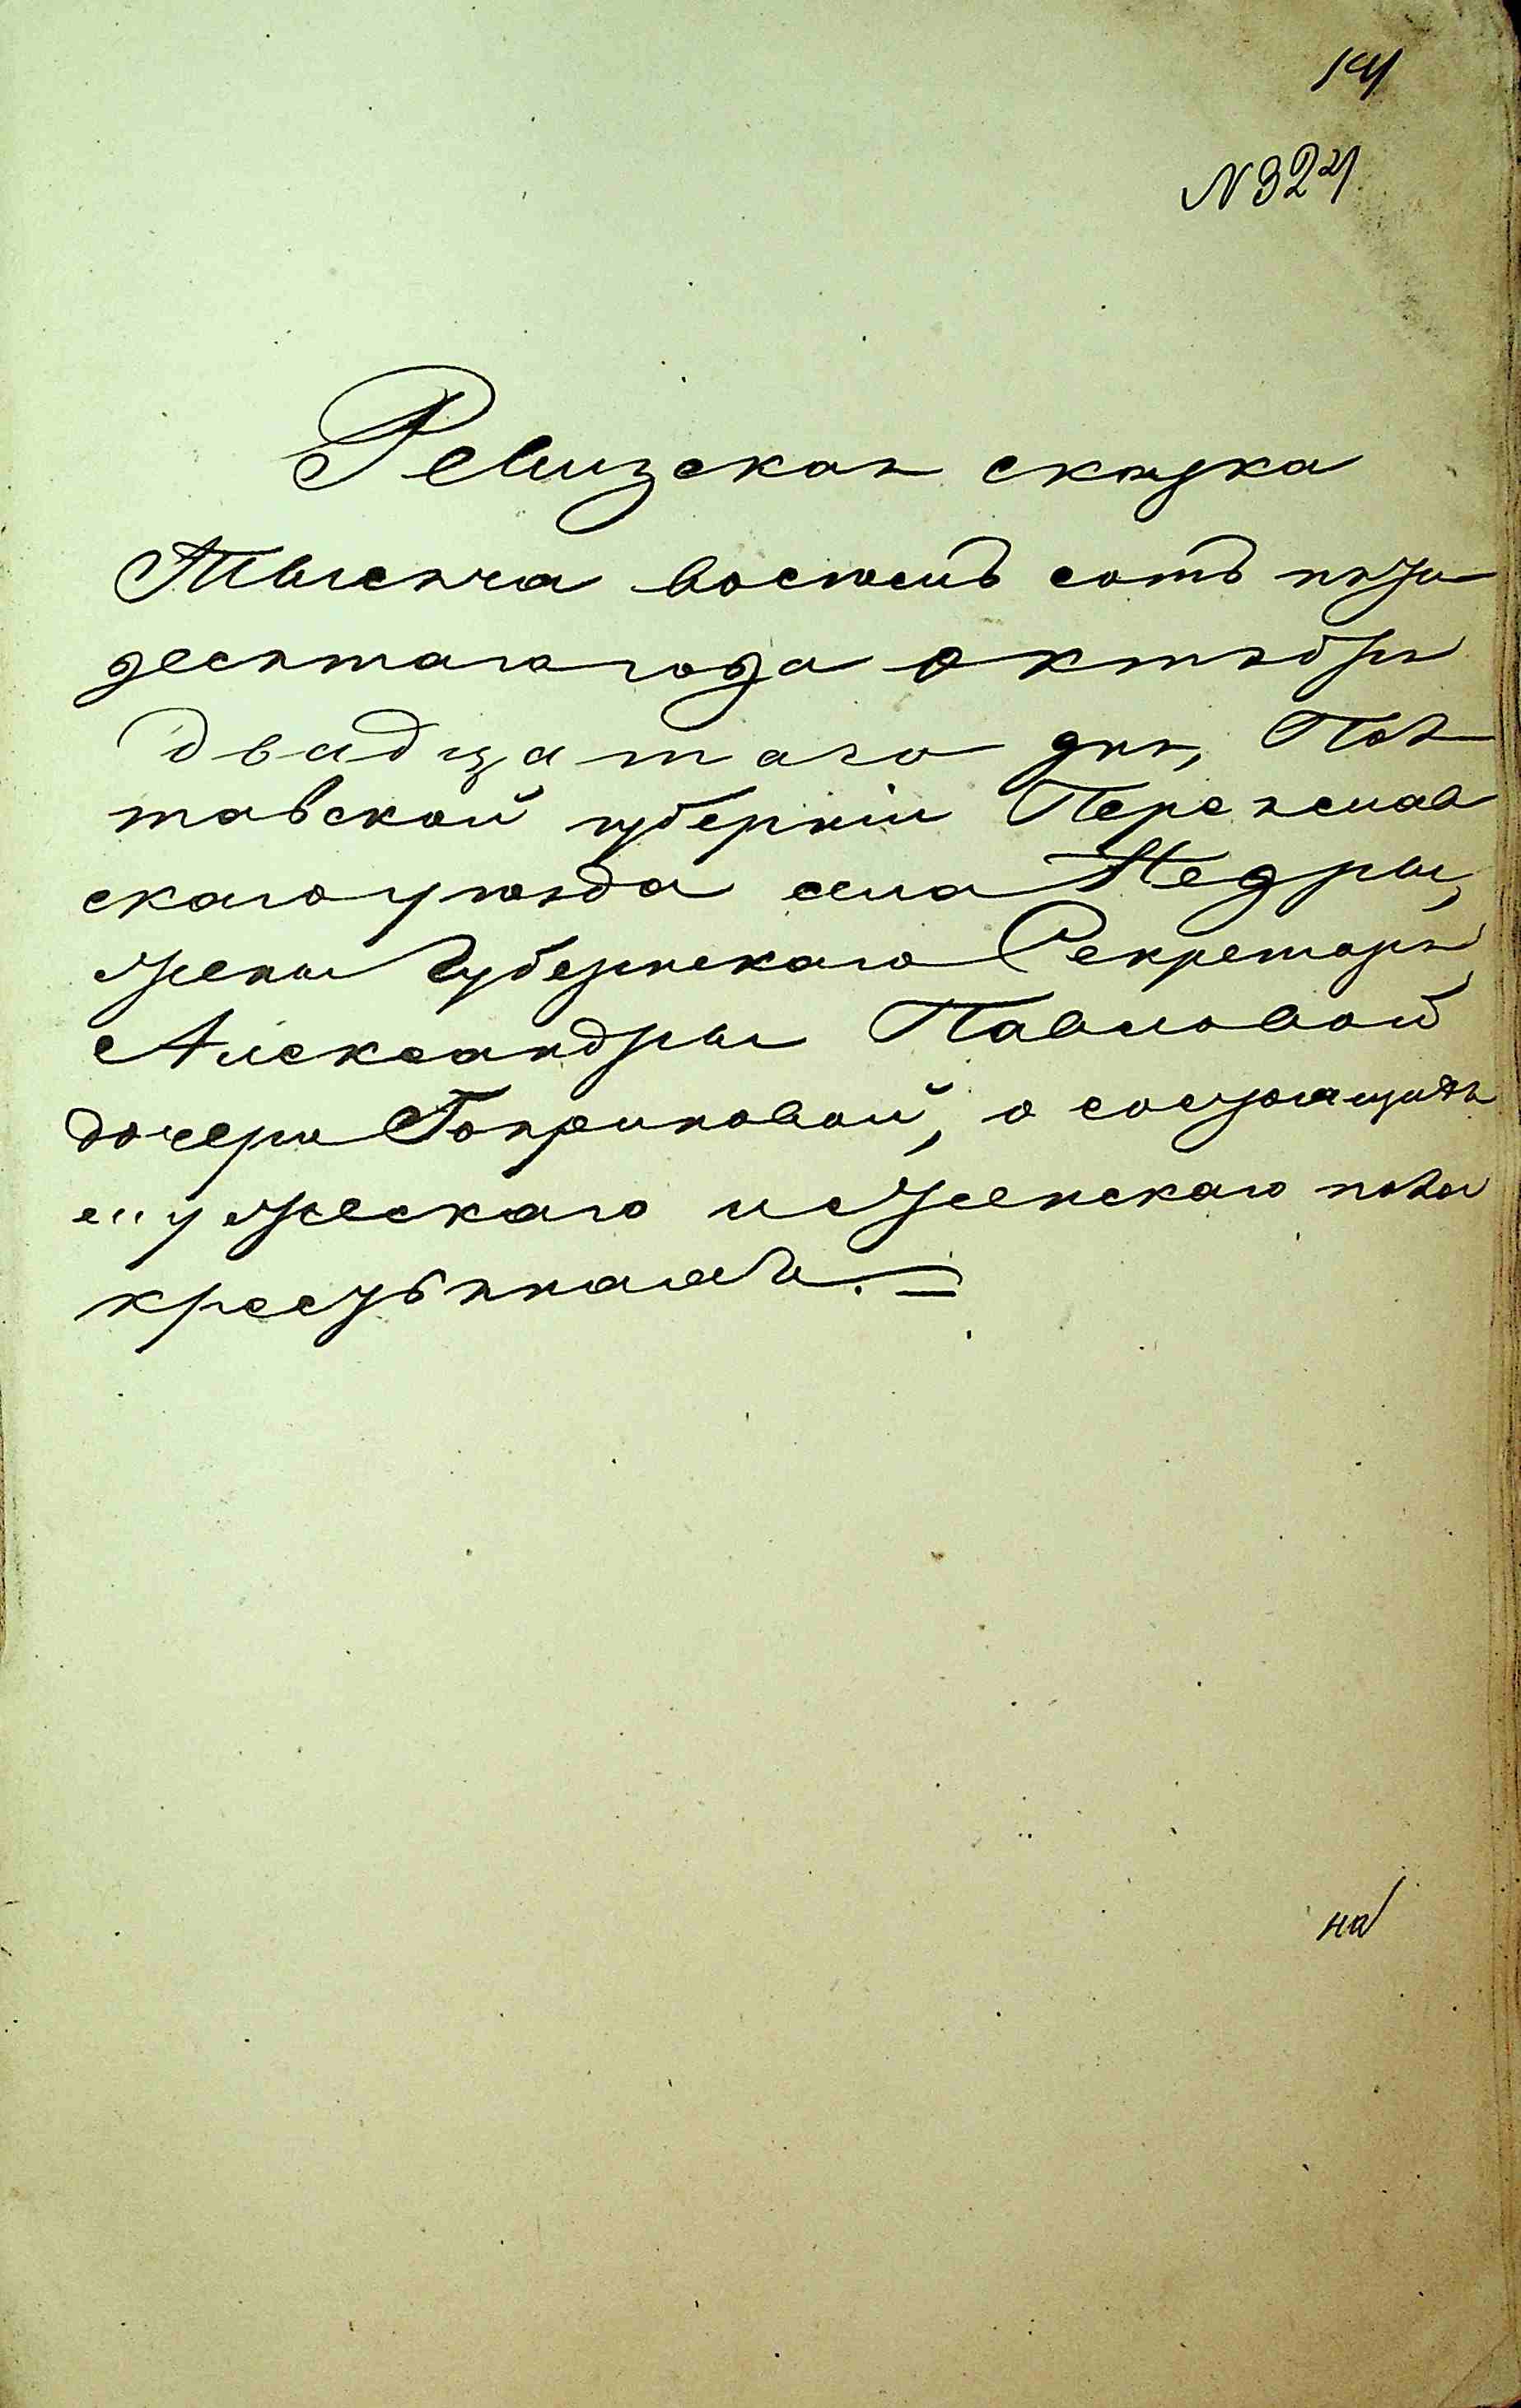 14
№ 324
Ревизская сказка
Тысяча восемь сотъ пяти
десятаго года октября
двадцатаго дня, Пол
тавской губерніи Переяслав
скаго уѣзда села Недры,
жены Губернскаго Секретаря
Александры Павловой
дочери о состоящихъ
мужескаго и женскаго пола
крестьянахъ. =
на